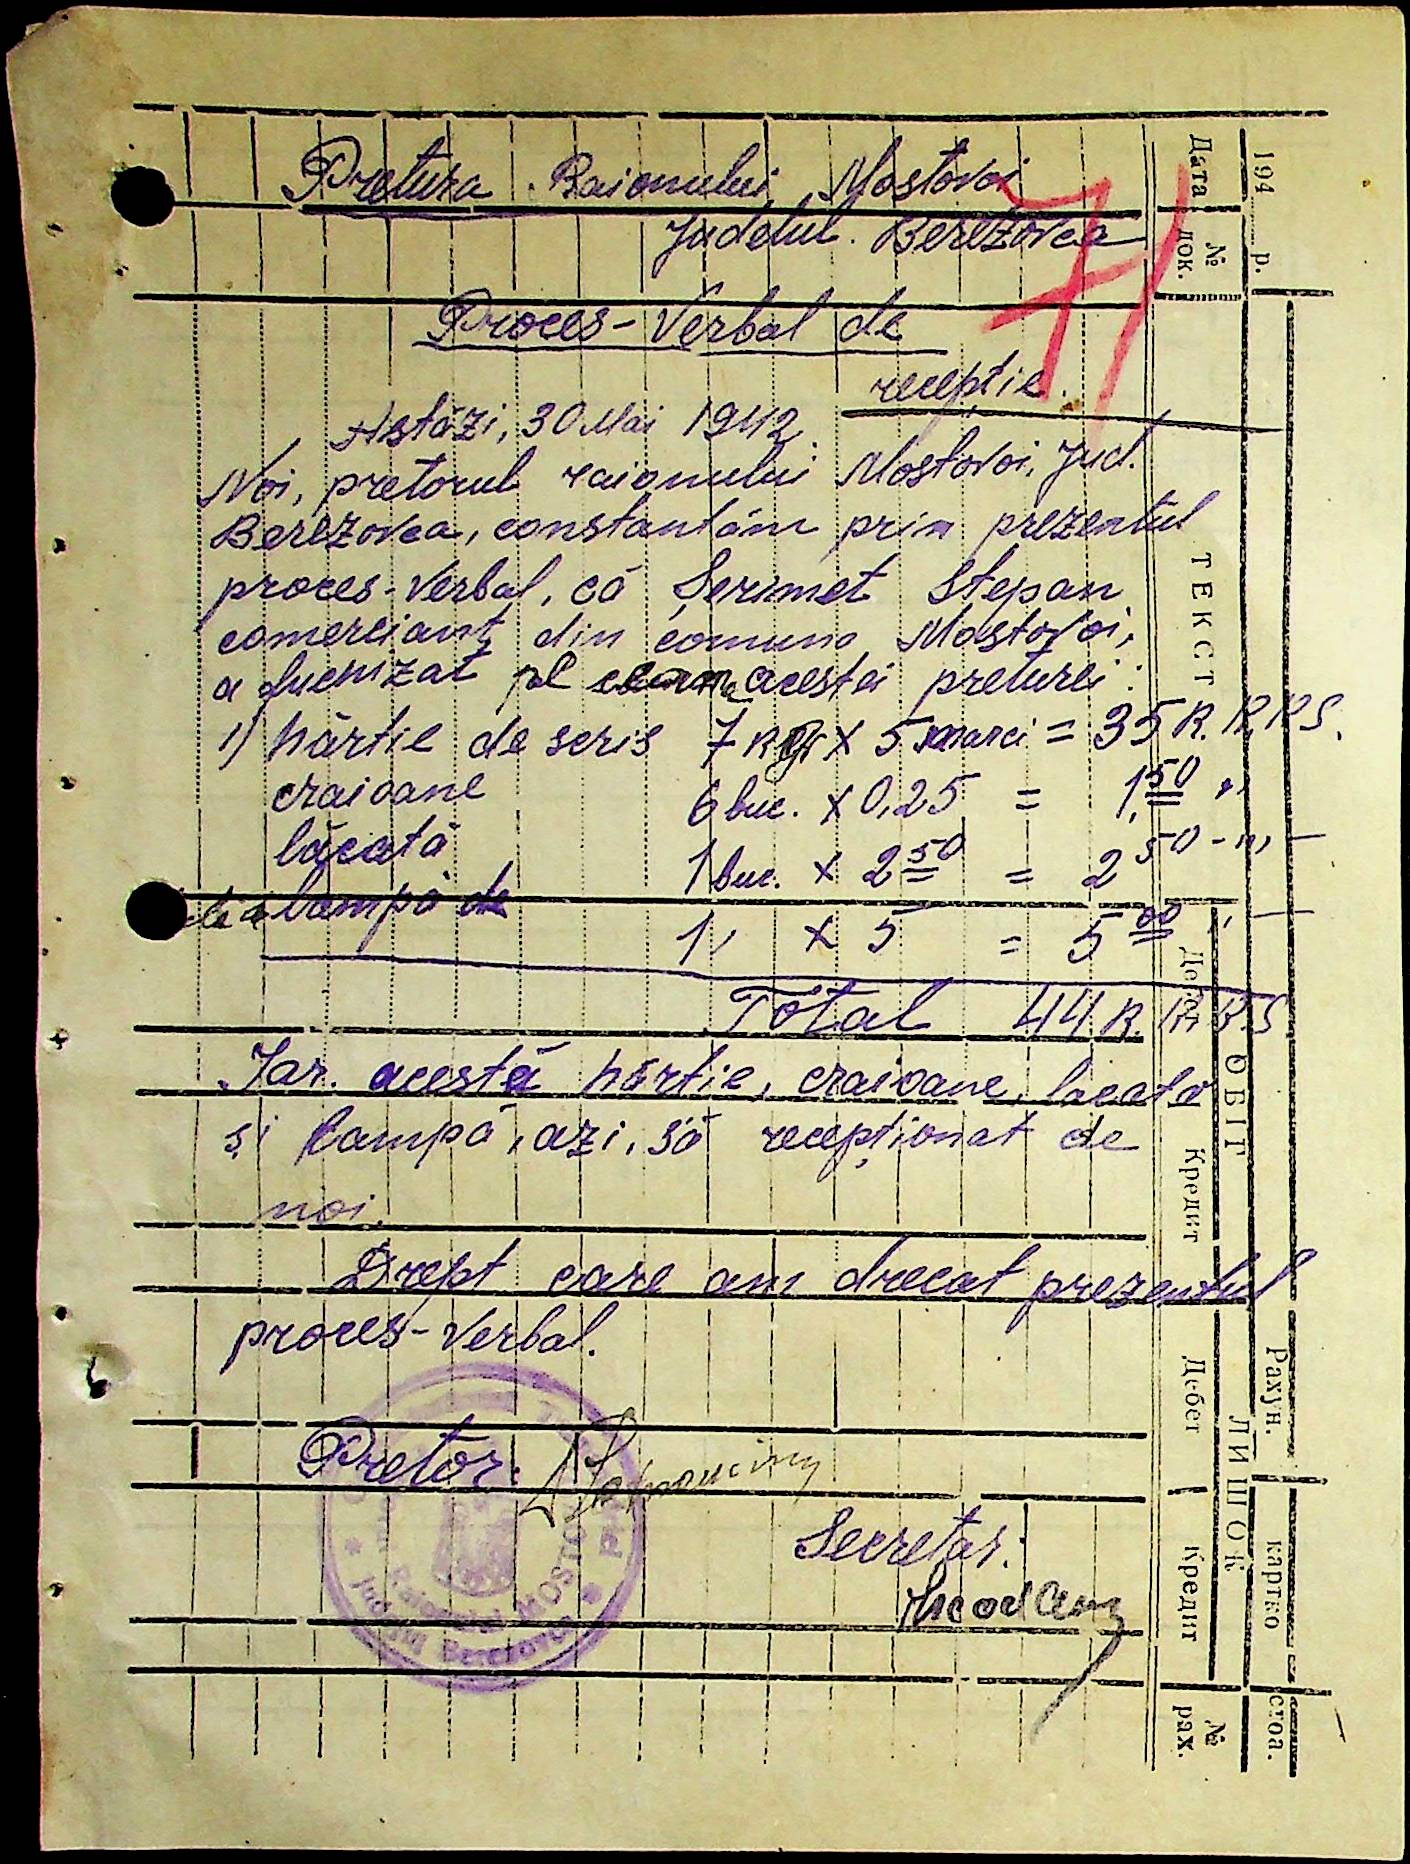 Pretura Raionului Mostovoi
Judetul Berezovca
71
Proces-Verbal de
recepție.
Astăzi, 30 Mai 1942
Noi, pretorul raionului Mostovoi, Jud.
Berezovca, constantăm prin prezentul
proces-Verbal, că Șerimet Stepan
comerciant din comuna Mostovoi,
a furnizat acestei preturei:
1) hârtie de scris 7 kgr x 5 marci = 35 R.K.K.S.
craioane 6 buc. x 0,25 = 1,50 "
lăcată 1 buc. x 2 50 = 2 50 - " -
lampă de 1 " x 5 = 5 00 " -
Total 44 R.K.K.S
Iar. acestă hârtie, craioane, lacată
și lampă, azi, să recepționat de
noi.
Drept care am drecat prezentul
proces-Verbal.
Pretor:
Secretar:
Raionului MOSTOVOI
Județul Berezovca
194 р.
Дата
№ док.
ТЕКСТ
ОБІГ
Дебет
Кредит
ЛИШОК
Дебет
Кредит
№ рах.
Рахун.
картко
стоа.